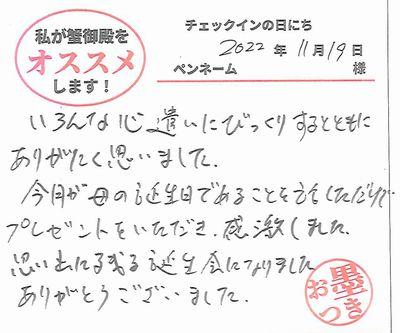 私が蟹御殿を
オススメ
します！
チェックインの日にち
2022年 11月 19日
ペンネーム 様
いろんな心遣いにびっくりするとともに
ありがたく思いました。
今月が母の誕生日であることを話しただけで
プレゼントをいただき、感激しました。
思い出に残る誕生会になりました
ありがとうございました。
お墨つき